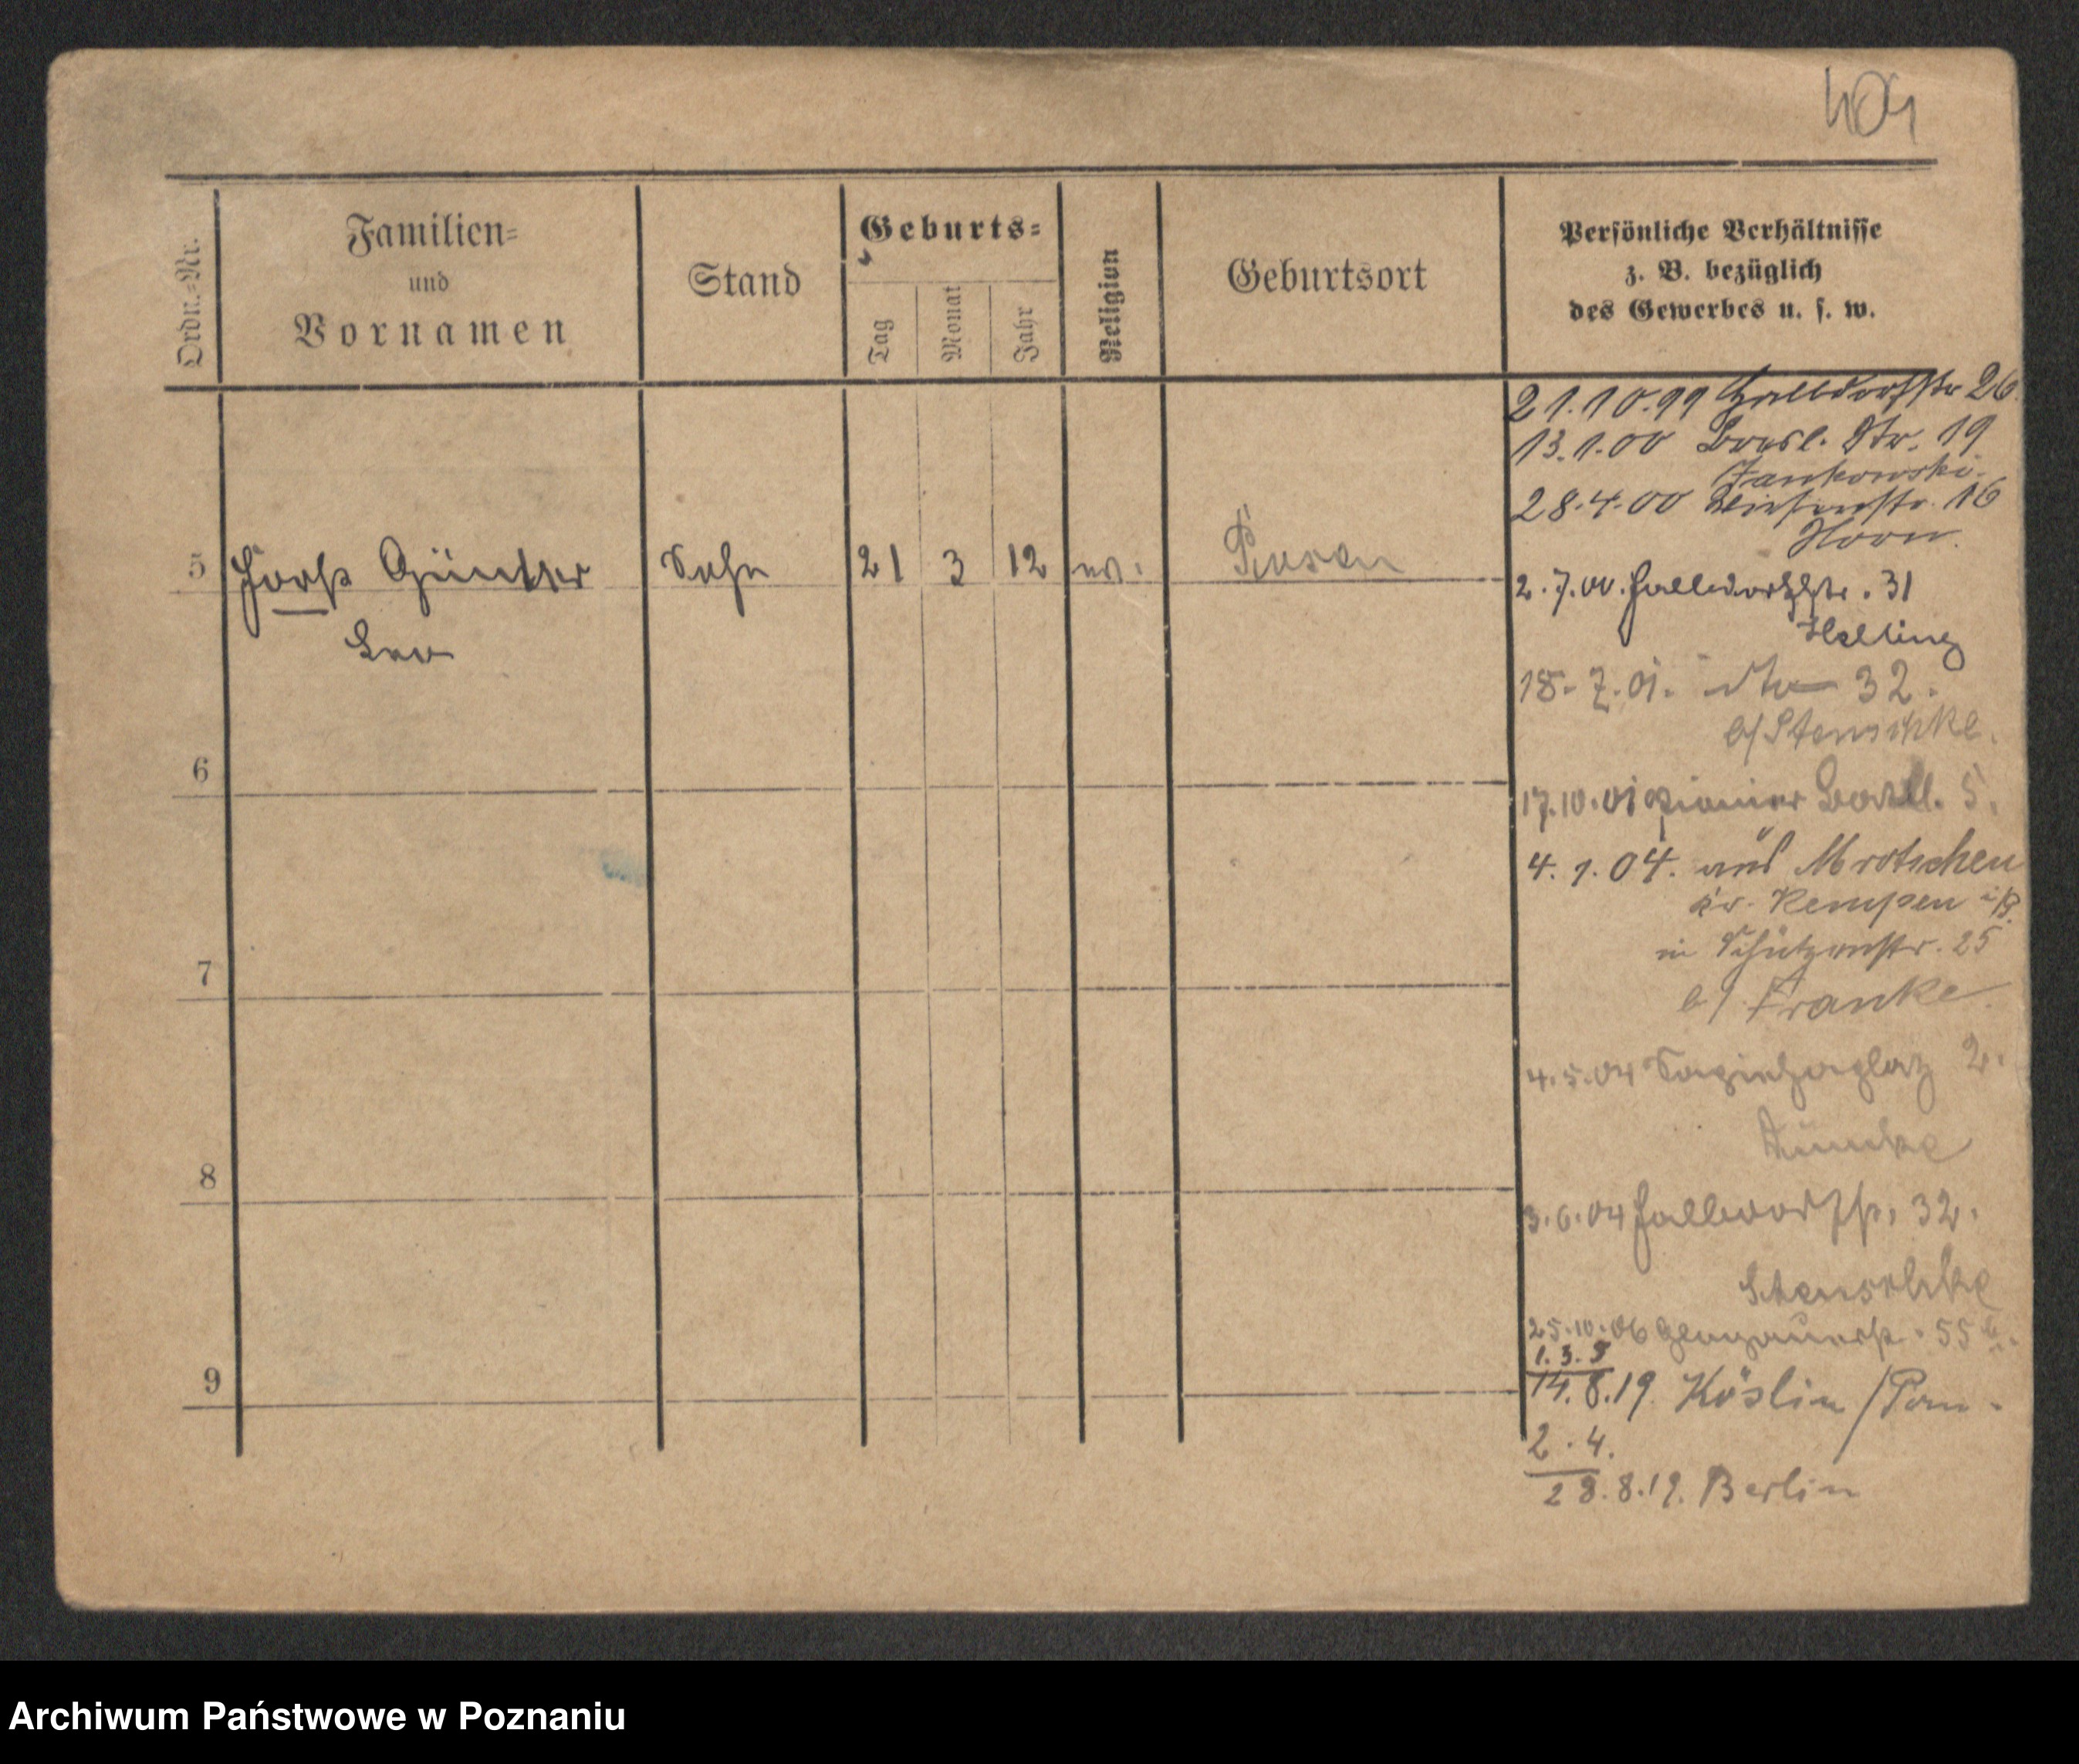 404
Ordn.=Nr.
Familien=
und
Vornamen
Stand
Geburts=
Tag
Monat
Jahr
Religion
Geburtsort
Persönliche Verhältnisse
z. B. bezüglich
des Gewerbes u. s. w.
21.10.99 Halldorfstr 26.
13.1.00 Bresl. Str. 19
Jankowski.
28.4.00 Wiesenstr. 16
Horn.
5 Horst Günther Sohn 21 3 12 ev. Posen
Leo
2.7.00. Halldorfstr. 31
Helling
18.7.01. 32.
b/Stenschke.
6
17.10.01 Pionier Batl. 5.
4.1.04. aus Mrotschen
Kr. Kempen i/P.
in Schützenstr. 25
b/. Franke.
7
4.5.04 Sapiehaplatz 2.
8
3.6.04 Halldorfstr. 32.
Stenschke
25.10.06 Glogauerstr. 55
1.3.
9
14.8.19. Köslin /Pom.
2.4.
28.8.19. Berlin
Archiwum Państwowe w Poznaniu